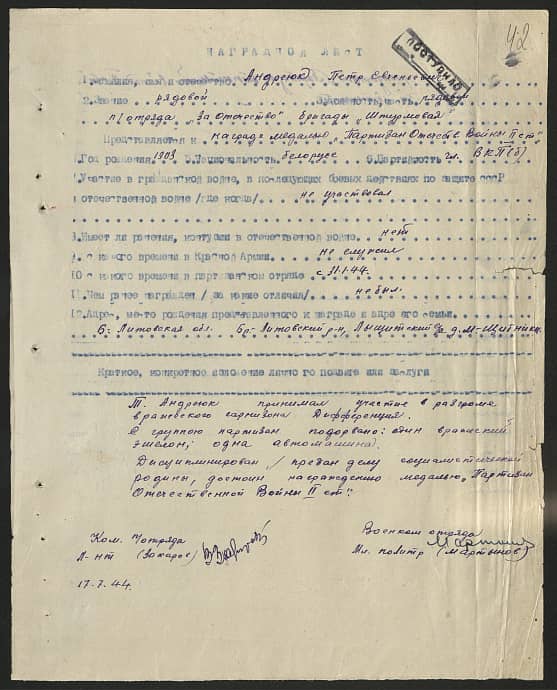 42
ПОСТУПИЛО
НАГРАДНОЙ ЛИСТ
1. Фамилия, имя и отчество. Андреюк Петр Евгеньевич
2. Звание рядовой 3. Должность, часть рядовой
п/отряда "За Отечество" бригады "Штурмовая
Представляется к награде медалью "Партизан Отечеств. Войны II ст"
4. Год рождения 1903 5. Национальность белорус 6. Партийность чл. ВКП(б)
7. Участие в гражданской войне, в последующих боевых действиях по защите СССР
и отечественной войне /где когда/ не участвовал
8. Имеет ли ранения, контузии в отечественной войне нет
9. С какого времени в Красной Армии. не служил
10. С какого времени в партизанском отряде с 11.1.44.
11. Чем ранее награжден /за какие отличия/ не был.
12. Адрес, место рождения представленного к награде и адрес его семьи.
Б-Литовская обл. Бр-Литовский р-н, д. М-Щитники
Краткое, конкретное изложение личного подвига или заслуги
Т. Андреюк принимал участие в разгроме
вражеского гарнизона Дифференция.
С группою партизан подорвано: один вражеский
эшелон; одна автомашина.
Дисциплинирован, предан делу социалистической
родины, достоин награждению медалью "Партизан
Отечественной Войны II ст".
Ком. отряда Военком отряда
Л-нт (Захаров) Мл. политр (Мартынов)
17.7.44.